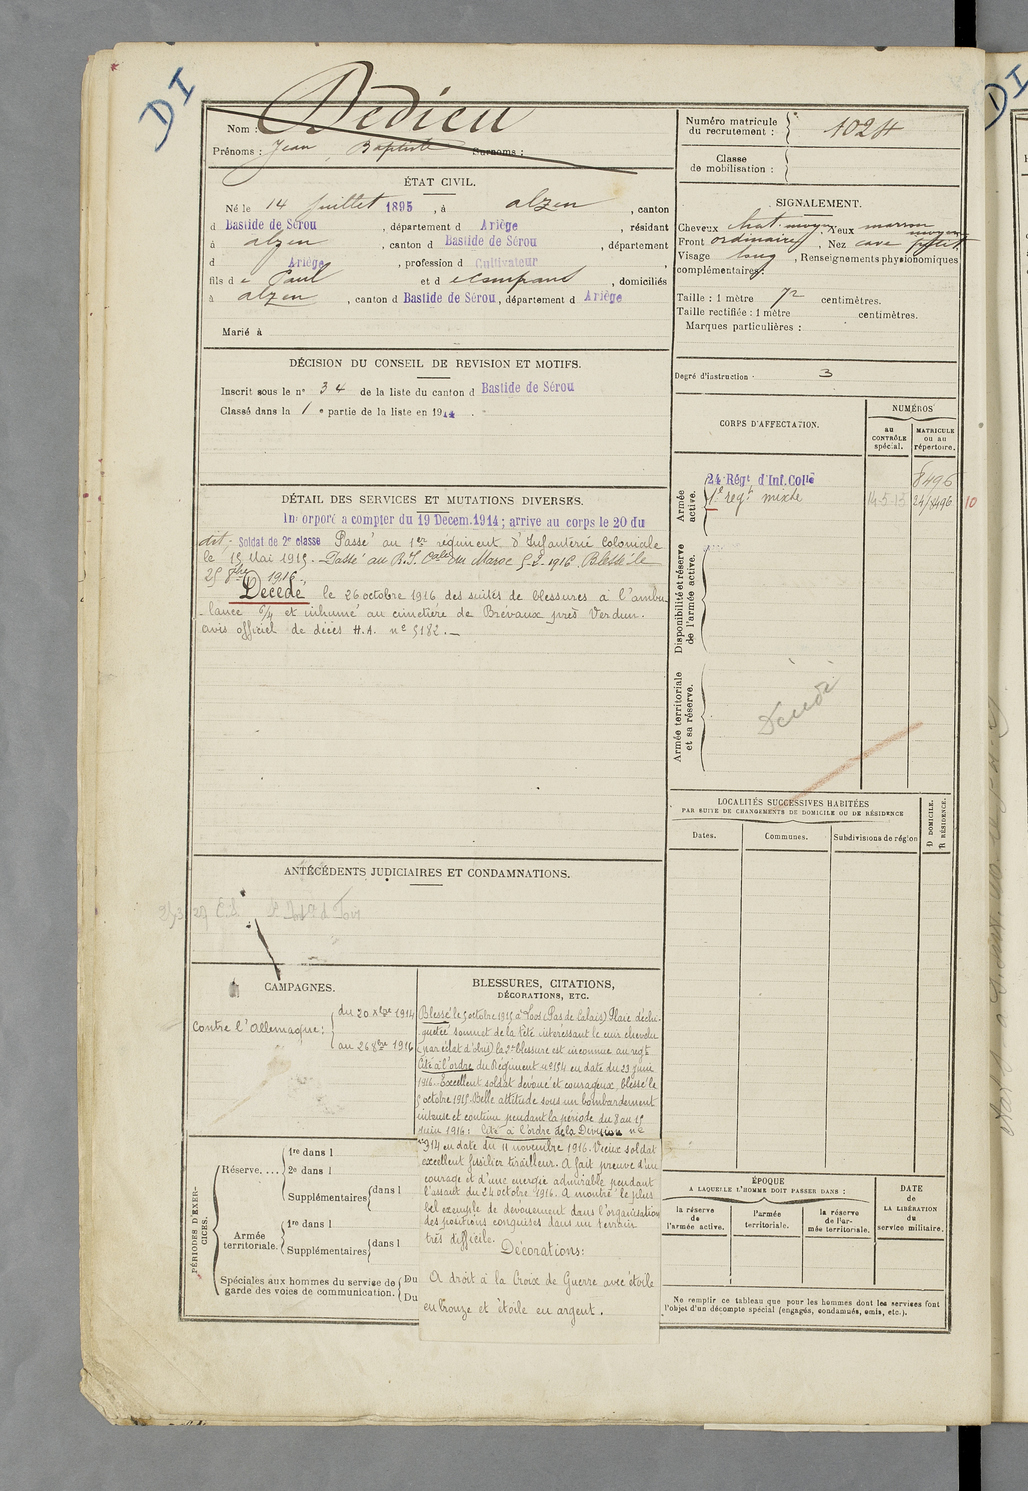 DI
DI
Nom : Dedieu
Prénoms : Jean, Baptiste Surnoms :
Numéro matricule du recrutement : 1024
Classe de mobilisation :
ÉTAT CIVIL.
Né le 14 Juillet 1895, à alzen, canton
d Bastide de Sérou, département d Ariège, résidant
à alzen, canton d Bastide de Sérou, département
d Ariège, profession d Cultivateur
fils de Paul et d domiciliés
à alzen, canton d Bastide de Sérou, département d Ariège
Marié à
SIGNALEMENT.
Cheveux chat. moyen Yeux marron moyen
Front ordinaire, Nez cave petit
Visage long, Renseignements physionomiques
complémentaires:
Taille : 1 mètre 72 centimètres.
Taille rectifiée : 1 mètre centimètres.
Marques particulières :
Degré d'instruction 3
DÉCISION DU CONSEIL DE REVISION ET MOTIFS.
Inscrit sous le n° 34 de la liste du canton d Bastide de Sérou
Classé dans la 1e partie de la liste en 1914.
CORPS D'AFFECTATION.
NUMÉROS
au CONTRÔLE spécial.
MATRICULE ou au répertoire.
Armée active.
24 Régt d'Inf. Colle 8496
1e regt mixte 14-5-15 24/8496 10
Disponibilité et réserve de l'armée active.
Armée territoriale et sa réserve.
DÉTAIL DES SERVICES ET MUTATIONS DIVERSES.
Incorporé a compter du 19 Decem. 1914 ; arrive au corps le 20 du
dit - Soldat de 2e classe Passé au 1er régiment d'Infanterie coloniale
le 15 Mai 1915. Passé au R.I. Colal du Maroc 5-2-1916. Blessé le
25 8bre 1916.
Décédé le 26 octobre 1916 des suites de blessures à l'ambu-
lance et inhumé au cimetière de Brévaux près Verdun.
avis officiel de décès H.A. n° 5182.
Décédé
LOCALITÉS SUCCESSIVES HABITÉES
PAR SUITE DE CHANGEMENTS DE DOMICILE OU DE RÉSIDENCE
Dates.
Communes.
Subdivisions de région
D DOMICILE.
R RÉSIDENCE.
ANTÉCÉDENTS JUDICIAIRES ET CONDAMNATIONS.
CAMPAGNES.
Contre l'Allemagne :
du 20 Xbre 1914
au 26 8bre 1916
BLESSURES, CITATIONS,
DÉCORATIONS, ETC.
Blessé le 5 octobre 1915 à Loos (Pas de Calais) Plaie déchi-
quetée sommet de la tête intéressant le cuir chevelu
(par éclat d'obus) la 2e blessure est inconnue au regt
Cité à l'ordre du Régiment n° 154 en date du 23 juin
1916. Excellent soldat dévoué et courageux, blessé le
5 octobre 1915. Belle attitude sous un bombardement
intense et continu pendant la période du 8 au 15
Juin 1916 : Cité à l'ordre de la Division n°
n° 314 en date du 11 novembre 1916. Vieux soldat
excellent fusilier tirailleur. A fait preuve d'un
courage et d'une energie admirable pendant
l'assaut du 24 octobre 1916. A montré le plus
bel exemple de dévouement dans l'organisation
des positions conquises dans un terrain
très difficile.
Décorations:
A droit à la Croix de Guerre avec étoile
en bronze et étoile en argent.
PÉRIODES D'EXERCICES.
Réserve....
1re dans l
2e dans l
Supplémentaires dans l
Armée territoriale.
1re dans l
Supplémentaires dans l
Spéciales aux hommes du service de
garde des voies de communication.
Du
Du
ÉPOQUE
A LAQUELLE L'HOMME DOIT PASSER DANS :
la réserve de l'armée active.
l'armée territoriale.
la réserve de l'armée territoriale.
DATE de LA LIBÉRATION du service militaire.
Ne remplir ce tableau que pour les hommes dont les services font
l'objet d'un décompte spécial (engagés, condamnés, omis, etc.).